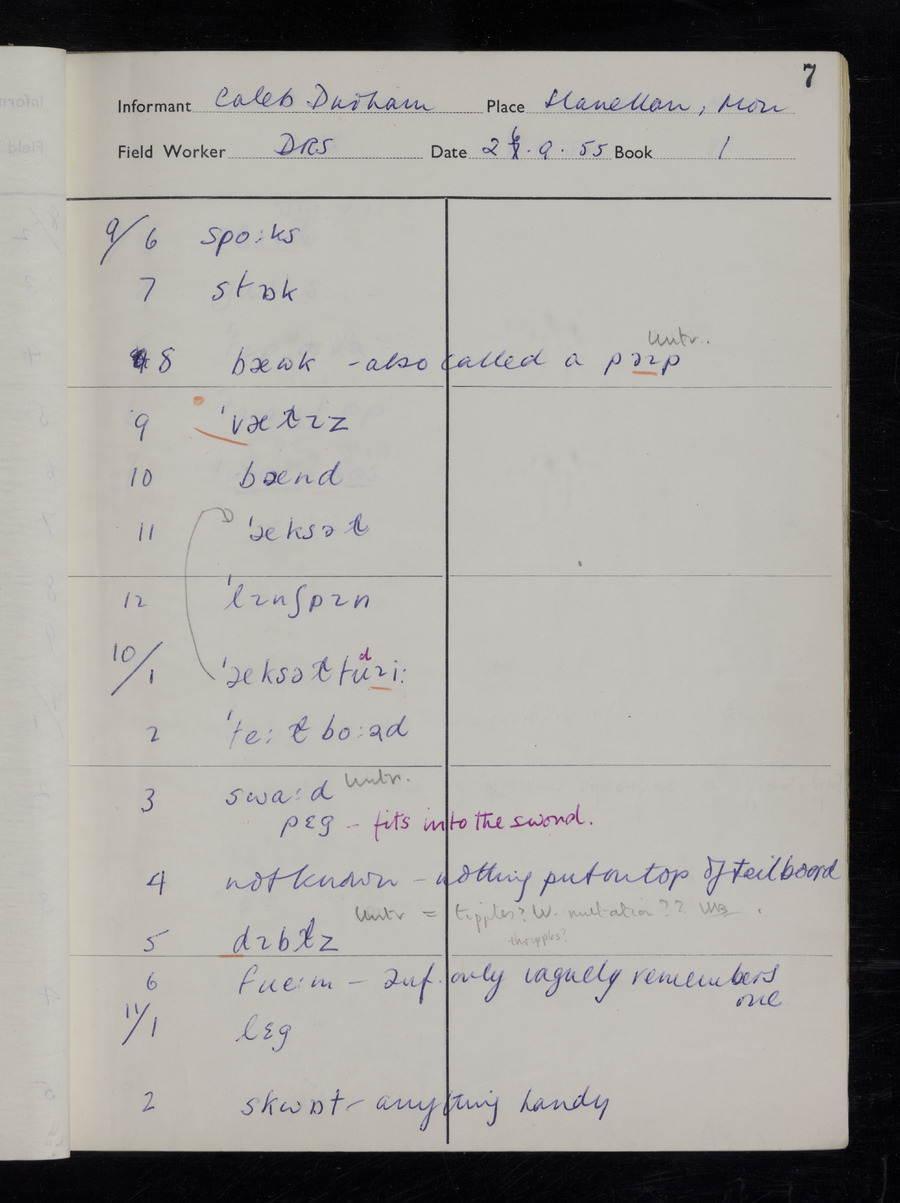 7
Informant Caleb Durham Place Llanellen, Mon
Field Worker DRS Date 26.9.55 Book 1
9/6 spoːks
7 stɒk
Untr.
8 bɔwk - also called a pɜɪp
9 ˈvætɪz
10 bænd
11 ˈæksət
12 ˈlɪnʃpɪn
d
10/1 ˈæksətfɪi:
2 ˈteːɫboːəd
3 swaːd Untr.
pɛg - fits into the sword.
4 not known - nothing put on top of tailboard
Untr = tipples? W. mutation??
thripples?
5 dɪbɫz
6 fɹeːm - Inf. only vaguely remembers
one
11/1 lɛg
2 skwɒt - anything handy